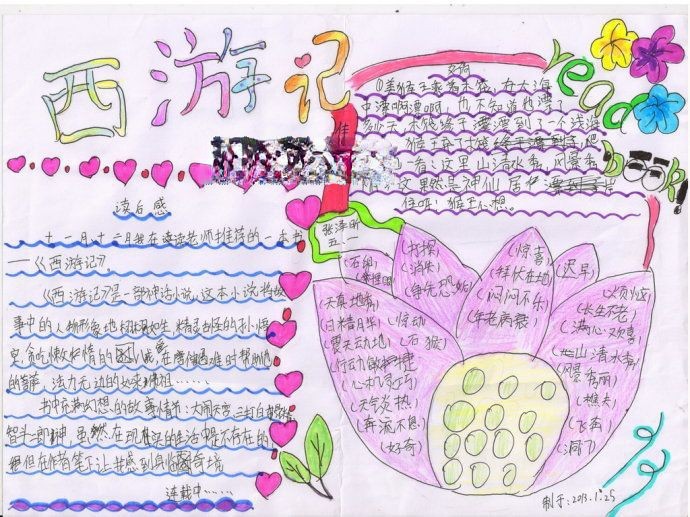 西游记
read
book!
读后感
十一月、十二月我在读老师推荐的一本书
——《西游记》。
《西游记》是一部神话小说，这本小说将故
事中的人物形象地栩栩如生，精灵古怪的孙悟
空，贪吃懒
的菩萨，法力无边的如来佛祖……
书中充满幻想的故事情节：大闹天宫、三打白骨精
智斗二郎神，虽然在现实的生活中是不存在的
但在作者笔下让
连载中……
佳
①美猴王乘着木筏，在大海
中漂啊漂啊，也不知道他漂了
多少天，木筏终于漂到了一个浅海
一看：这里山清水秀，风景秀
这里然是神仙居
住呀！猴王心想。
张泽昕
五、一
(石卵)
(打探)
(消失)
(争先恐后)
(惊喜)
(拜伏在地)
(闷闷不乐)
(年老病衰)
(迟早)
(烦恼)
(长生不老)
(满心欢喜)
(山清水秀)
(风景秀丽)
(樵夫)
(飞奔)
(洞门)
(天真地秀)
(日精月华)
(惊动)
(震天动地)
(石猴)
(行动敏捷)
(心灵手巧)
(天气炎热)
(奔流不息)
(好奇)
制于：2013.1.25